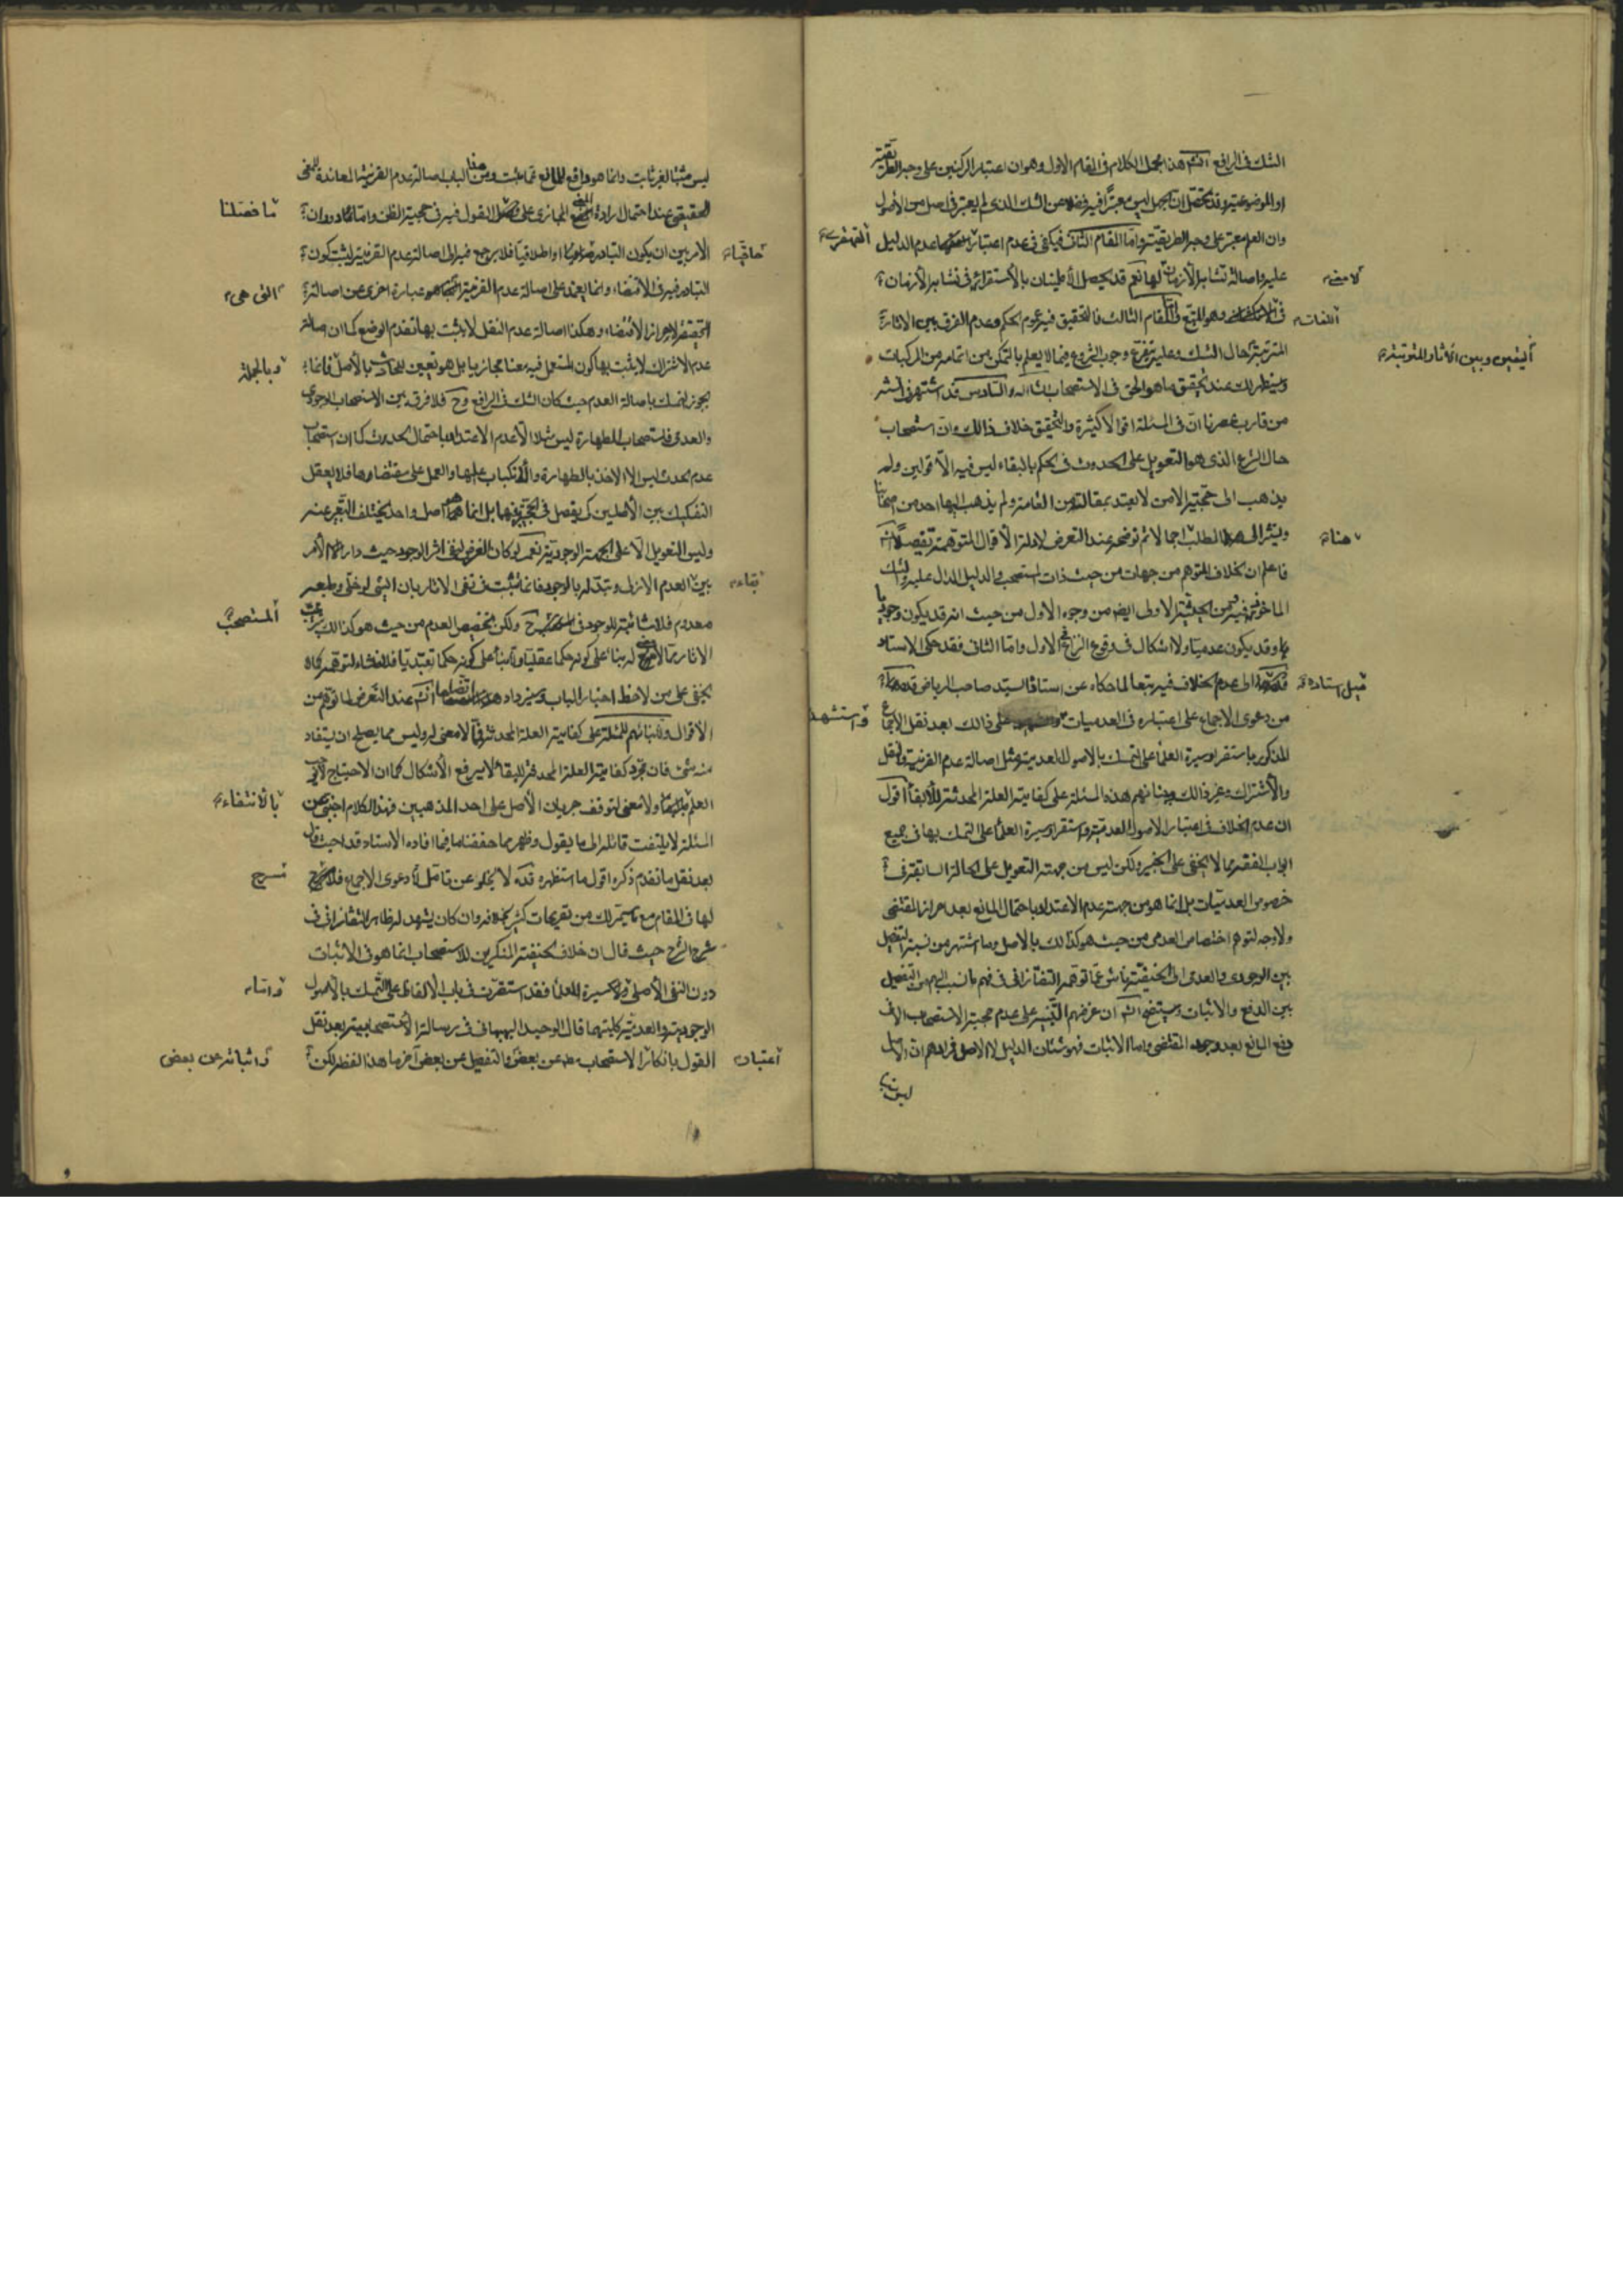 الشك فى الرافع انتهى هذا مجمل الكلام فى المقام الاول وهو ان اعتبار الركنين على وجه الطريقية
او الموضوعية وقد تحصل ان الجهل ليس معتبرا فيه فضلا عن الشك الذى لم يعتبر فى اصل من الأصول
وان العلم معتبر على وجه الطريقية واما المقام الثانى فيكفى فى عدم اعتبار عدم الدليل
القهقرى
عليه واصالة تشابه الأزمان لها نعم قد يحصل الاطمينان بالأستقراء فى تشابه الأزمان
لا معنى
فى وهو المتبع واما المقام الثالث فالتحقيق فيه عموم الحكم وعدم الفرق بين الاثار
اللغات
المترتبة حال الشك وعليه يتفرع وجوب الشروع فيما لا يعلم بالتمكن من اتمامه من المركبات
اليقين وبين الآثار المترتبة
وسيظهر لك عند تحقيق ما هو الحق فى الاستصحاب انشاء الله والسادس قد اشتهر فى السنة
من قارب عصرنا ان فى المسئلة اقوالا كثيرة والتحقيق خلاف ذالك وان استصحاب
حال الشرع الذى هو التعويل على الحدوث فى الحكم بالبقاء ليس فيه الا قولين ولم
يذهب الى حجيته الا من لا يعتد بمقالته من العامة ولم يذهب اليها احد من اصحابنا
ويشير الى المطلب اجمالا ثم نوضحه عند التعرض لادلة الأقوال المتوهمة تفصيلا
هنا
فاعلم ان الخلاف المتوهم من جهات من حيث ذات المستصحب والدليل الدال عليه والشك
الماخوذ فيه فمن الحيثية الاولى ايضا من وجوه الاول من حيث انه قد يكون وجوديا
وقد يكون عدميا ولا اشكال فى وقوع النزاع فى الاول واما الثانى فقد حكى الاستاد
الى عدم الخلاف فيه تبعا لما حكاه عن استاد السيد صاحب الرياض قده
ميل استاده
من دعوى الاجماع على اعتباره فى العدميات على ذالك بعد نقل الاجماع
واستشهد
المذكور باستقرار سيرة العلماء على التمسك بالاصول العدمية مثل اصالة عدم القرينة والنقل
والأشتراك وغير ذالك وبنائهم هذه المسئلة على كفاية العلة المحدثة للابقاء اقول
ان عدم الخلاف فى اعتبار الاصول العدمية واستقرار سيرة العلماء على التمسك بها فى جميع
ابواب الفقه مما لا يخفى على الخبير ولكن ليس من جهة التعويل على الحالة السابقة فى
خصوص العدميات بل انما هو من جهة عدم الاعتداد باحتمال المانع بعد احراز المقتضى
ولا وجه لتوهم اختصاص العدمى من حيث هو كذالك بالاصل وما اشتهر من نسبة التفصيل
بين الوجودى والعدمى الى الحنفية ناش عما توهمه التفتازانى فى فهم ما نسب اليهم من التفصيل
بين الدفع والاثبات وسيتضح ان غرضهم التنبيه على عدم حجية الاستصحاب الا فى
دفع المانع بعد وجود المقتضى واما الاثبات فهو شئان الدليل لا الاصل فمرادهم ان الاصل
ليس
ليس مثبتا لغير ثابت وانما هو دافع للمانع عما ثبت ومن هذا الباب اصالة عدم القرينة المعاندة للمعنى
الحقيقى عند احتمال ارادة المعنى المجازى على القول فيه فى حجية الظن واما اذا دار
ما فصلنا
الامر بين ان يكون التبادر او اطلاقيا فلا يرجع فيه الى اصالة عدم القرينة ليثبت كون
حاقيا
التبادر فيه فى الاقتضاء وانما يعتمد على اصالة عدم القرينة عبارة اخرى عن اصالة
التى هى
الحقيقة لاحراز الاقتضاء وهكذا اصالة عدم النقل لا يثبت بها تقدم الوضع كما ان اصالة
عدم الاشتراك لا يثبت بها كون المستعمل فيه معنا مجازيا بل هو تعيين للحادث بالأصل فانما
وبالجملة
يجوز التمسك باصالة العدم حيث كان الشك فى الرافع وح فلا فرق بين الاستصحاب الوجودى
والعدمى فاستصحاب الطهارة ليس مثلا الا عدم الاعتداد باحتمال الحدث كما ان استصحاب
عدم الحدث ليس الا الاخذ بالطهارة والأنكباب عليها والعمل على مقتضاها فلا يعقل
التفكيك بين الأصلين كى يفصل فى الحجية بينها بل انما هما اصل واحد يختلف التعبير عنه
وليس التعويل الا على الجهة الوجودية نعم لو كان الغرض نفى اثر الوجود حيث دار الأمر
بين العدم الازلى وتبدله بالوجود فانما يثبت نفى الاثار بان الشئ لو خلى وطبعه
بقاء
معدوم فلا شائبة للوجود فى ح ولكن تخصيص العدم من حيث هو كذالك
المستصحب
الاثار مما لا وجه له بناء على كونه حكما عقليا واما بناء على كونه حكما تعبديا فلا منشاء لتوهمه كما لا
يخفى على من لاحظ اخبار الباب وسيزداد هذا اتضاحا انشاء الله عند التعرض لما توهم من
الاقوال واما بنائهم للمسئلة على كفاية العلة المحدثة فلا معنى له وليس مما يصلح ان يستفاد
منه شئ فان مجرد كفاية العلة المحدثة للبقاء لا يرفع الأشكال كما ان الاحتياج لا ينافى
العلم ولا معنى لتوقف جريان الأصل على احد المذهبين فهذا الكلام اجنبى عن
بالأنتفاء
المسئلة لا يلتفت قائله الى ما يقول وظهر مما حققناه ما فيما افاده الاستاد قده حيث قال
بعد نقل ما تقدم ذكره اقول ما استظهره قده لا يخلو عن تامل لأن دعوى الاجماع فلا
مسرح
لها فى المقام مع ما سيمر بك من تصريحات كثير بخلافه وان كان يشهد له ظاهر التفتازانى فى
شرح الشرح حيث قال ان خلاف الحنفية المنكرين للاستصحاب انما هو فى الاثبات
دون النفى الأصلى واما سيرة العلماء فقد استقرت فى باب الألفاظ على التمسك بالأصول
واما
الوجودية والعدمية كليتهما قال الوحيد البهبهانى فى رسالته الأستصحابية بعد نقل
القول بانكار الاستصحاب عن بعض والتفصيل عن بعض آخر ما هذا لفظه لكن
اعتبار
واثباته عن بعض